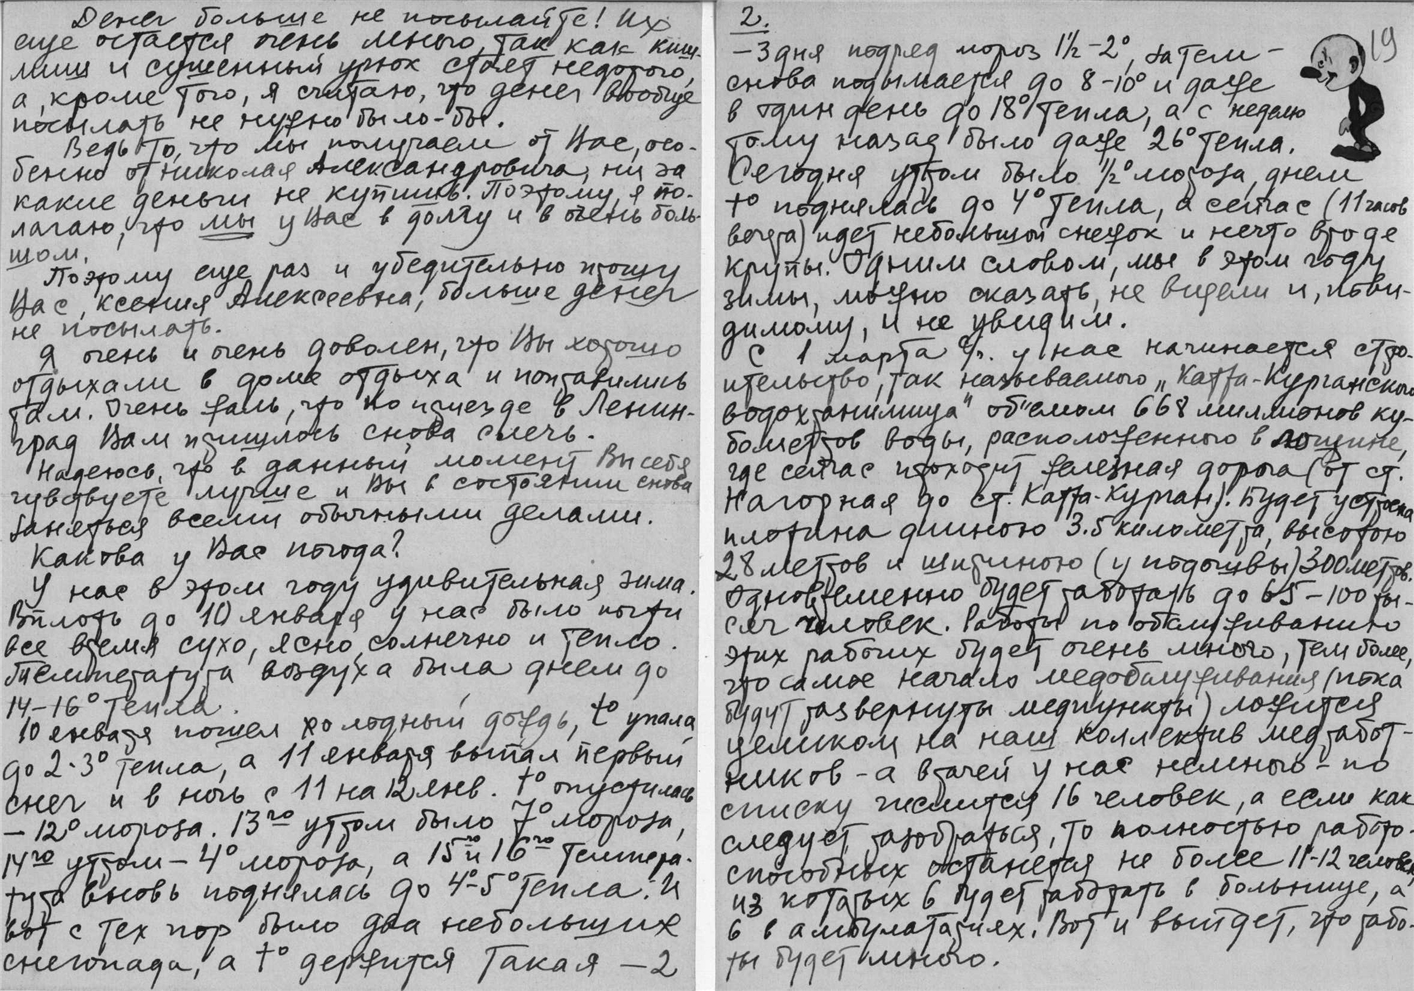 Денег больше не посылайте! Их
еще остается очень много, так как киш-
миш и сушенный урюк стоят недорого,
а, кроме того, я считаю, что денег вообще
посылать не нужно было-бы.
Ведь то, что мы получаем от Вас, осо-
бенно от Николая Александровича, ни за
какие деньги не купишь. Поэтому, я по-
лагаю, что мы у Вас в долгу и в очень боль-
шом.
Поэтому еще раз и убедительно прошу
Вас, Ксения Алексеевна, больше денег
не посылать.
Я очень и очень доволен, что Вы хорошо
отдыхали в доме отдыха и поправились
там. Очень жаль, что по приезде в Ленин-
град Вам пришлось снова слечь.
Надеюсь, что в данный момент Вы себя
чувствуете лучше и Вы в состоянии снова
заняться всеми обычными делами.
Какова у Вас погода?
У нас в этом году удивительная зима.
Вплоть до 10 января у нас было почти
все время сухо, ясно, солнечно и тепло.
Температура воздуха была днем до
14-16° тепла.
10 января пошел холодный дождь, t° упала
до 2-3° тепла, а 11 января выпал первый
снег и в ночь с 11 на 12 янв. t° опустилась
-12° мороза. 13го утром было 7° мороза,
14го утром - 4° мороза, а 15го и 16го темпера-
тура вновь поднялась до 4°-5° тепла. И
вот с тех пор было два небольших
снегопада, а t° держится такая - 2
2.
19
- 3 дня подряд мороз 1½ - 2°, затем -
снова подымается до 8-10° и даже
в один день до 18° тепла, а с неделю
тому назад было даже 26° тепла.
Сегодня утром было ½° мороза, днем
t° поднялась до 4° тепла, а сейчас (11 часов
вечера) идет небольшой снежок и нечто вроде
крупы. Одним словом, мы в этом году
зимы, можно сказать, не видели и, пови-
димому, и не увидим.
С 1 марта с/г. у нас начинается стро-
ительство, так называемого "Катта-Курганского
водохранилища" об"емом 668 миллионов ку-
бометров воды, расположенного в лощине,
где сейчас проходит железная дорога (от ст.
Нагорная до ст. Катта-Курган). Будет устроена
плотина длиною 3.5 километра, высотою
28 метров и шириною (у подошвы) 300 метров.
Одновременно будет работать до 65-100 ты-
сяч человек. Работы по обслуживанию
этих рабочих будет очень много, тем более,
что самое начало медобслуживания (пока
будут развернуты медпункты) ложится
целиком на наш коллектив медработ-
ников - а врачей у нас немного - по
списку числится 16 человек, а если как
следует разобраться, то полностью работо-
способных останется не более 11-12 человек,
из которых 6 будет работать в больнице, а
6 в амбулаториях. Вот и выйдет, что рабо-
ты будет много.